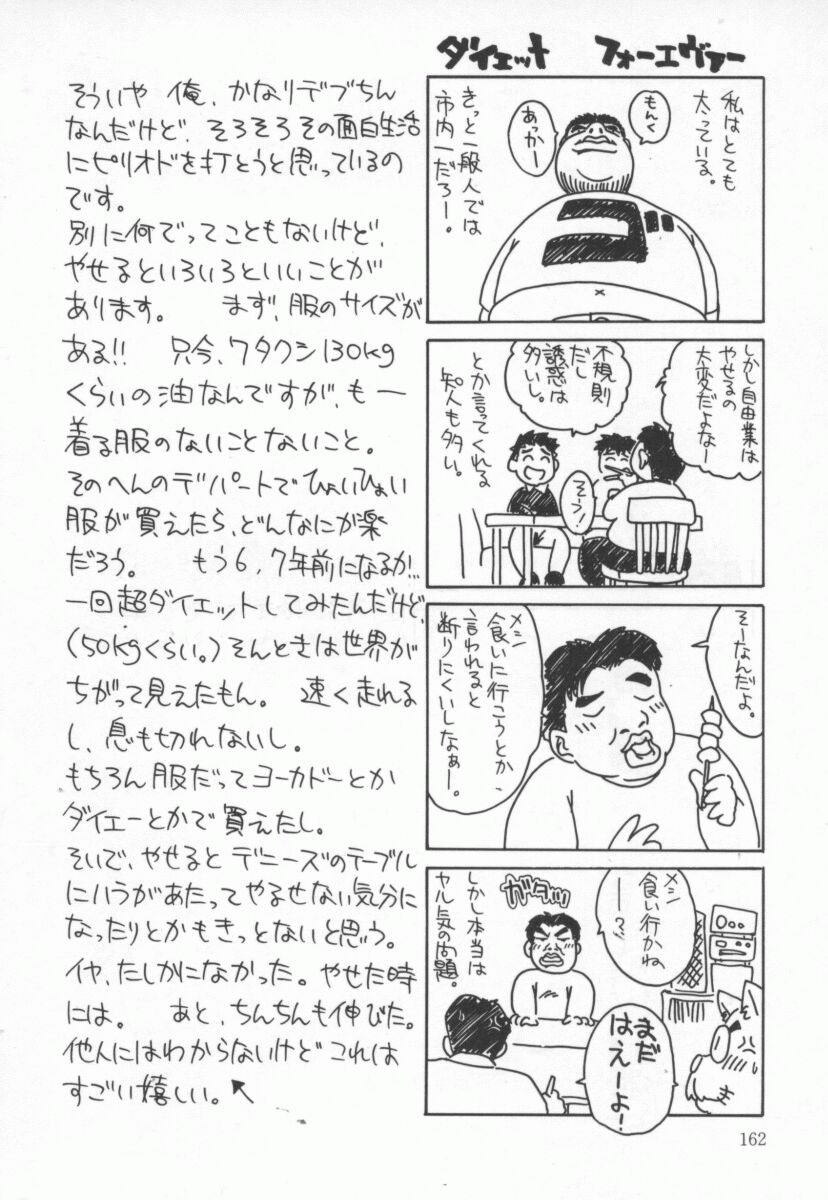 ダイエット　フォーエヴァー
私はとても
太っている。
もんく
あっかー
きっと一般人では
市内一だろー。
しかし自由業は
やせるの
大変だよなー
不規則
だし
誘惑は
多いし。
そーう!
とか言ってくれる
知人も多い。
そーなんだよ。
メシ
食いに行こうとか、
言われると
断りにくいしなぁー。
メシ
食い行かね
ー?
ガタッ
しかし本当は
ヤル気の問題。
まだ
はえーよ!
そういや 俺、かなりデブちん
なんだけど、そろそろその面白生活
にピリオドを打とうと思っているの
です。
別に何でってこともないけど、
やせるといろいろといいことが
あります。　まず、服のサイズが
ある!!　只今、ワタクシ130kg
くらいの油なんですが、も一
着る服のないことないこと。
そのへんのデパートでひょいひょい
服が買えたら、どんなにか楽
だろう。　もう6,7年前になるか…
一回超ダイエットしてみたんだけど、
(50kgくらい。)そんときは世界が
ちがって見えたもん。　速く走れる
し、息も切れないし。
もちろん服だってヨーカドーとか
ダイエーとかで買えたし。
そいで、やせると デニーズのテーブル
にハラがあたってやるせない気分に
なったりとかもきっとないと思う。
イヤ、たしかになかった。やせた時
には。　あと、ちんちんも伸びた。
他人にはわからないけど これは
すごい嬉しい。↖
162